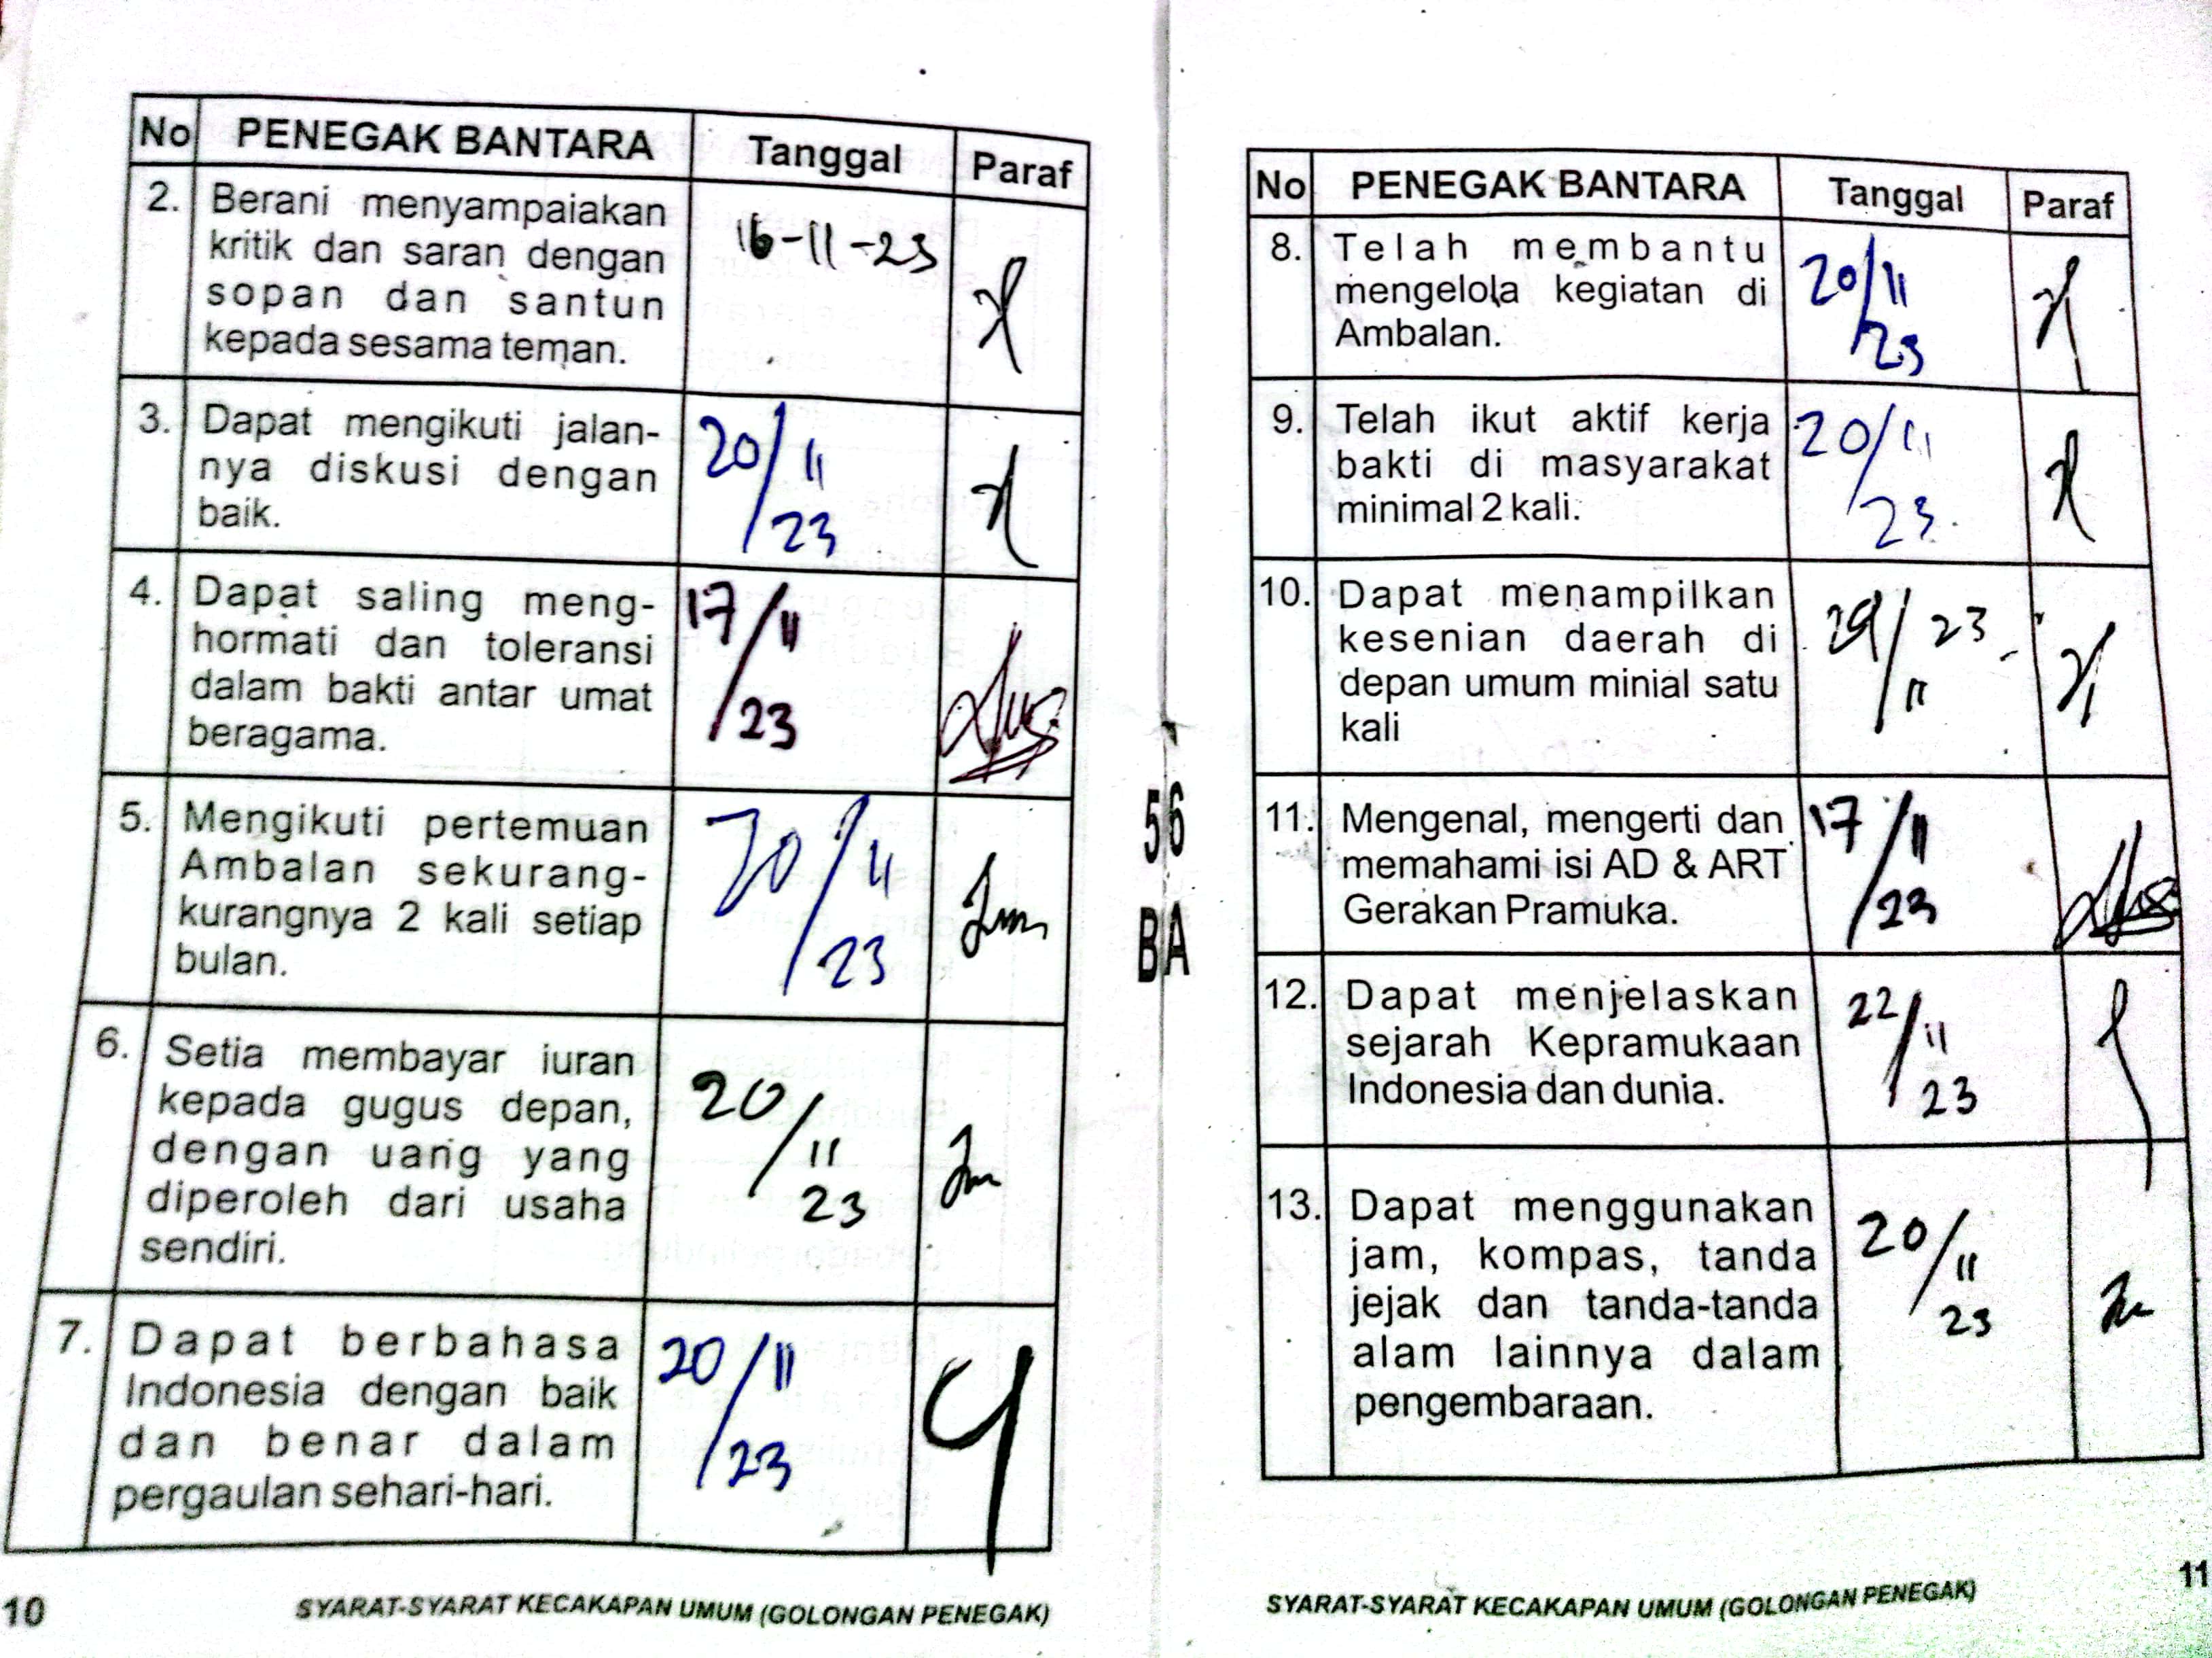 No PENEGAK BANTARA Tanggal Paraf
2. Berani menyampaiakan
kritik dan saran dengan
sopan dan santun
kepada sesama teman.
16-11-23
3. Dapat mengikuti jalan-
nya diskusi dengan
baik.
20/11
23
4. Dapat saling meng-
hormati dan toleransi
dalam bakti antar umat
beragama.
17/11
23
5. Mengikuti pertemuan
Ambalan sekurang-
kurangnya 2 kali setiap
bulan.
20/11
23
6. Setia membayar iuran
kepada gugus depan,
dengan uang yang
diperoleh dari usaha
sendiri.
20/11
23
7. Dapat berbahasa
Indonesia dengan baik
dan benar dalam
pergaulan sehari-hari.
20/11
23
10 SYARAT-SYARAT KECAKAPAN UMUM (GOLONGAN PENEGAK)
56
BA
No PENEGAK BANTARA Tanggal Paraf
8. Telah membantu
mengelola kegiatan di
Ambalan.
20/11
23
9. Telah ikut aktif kerja
bakti di masyarakat
minimal 2 kali.
20/11
23
10. Dapat menampilkan
kesenian daerah di
depan umum minial satu
kali
/ 23
11
11. Mengenal, mengerti dan
memahami isi AD & ART
Gerakan Pramuka.
17/11
23
12. Dapat menjelaskan
sejarah Kepramukaan
Indonesia dan dunia.
22/11
23
13. Dapat menggunakan
jam, kompas, tanda
jejak dan tanda-tanda
alam lainnya dalam
pengembaraan.
20/11
23
SYARAT-SYARAT KECAKAPAN UMUM (GOLONGAN PENEGAK) 11